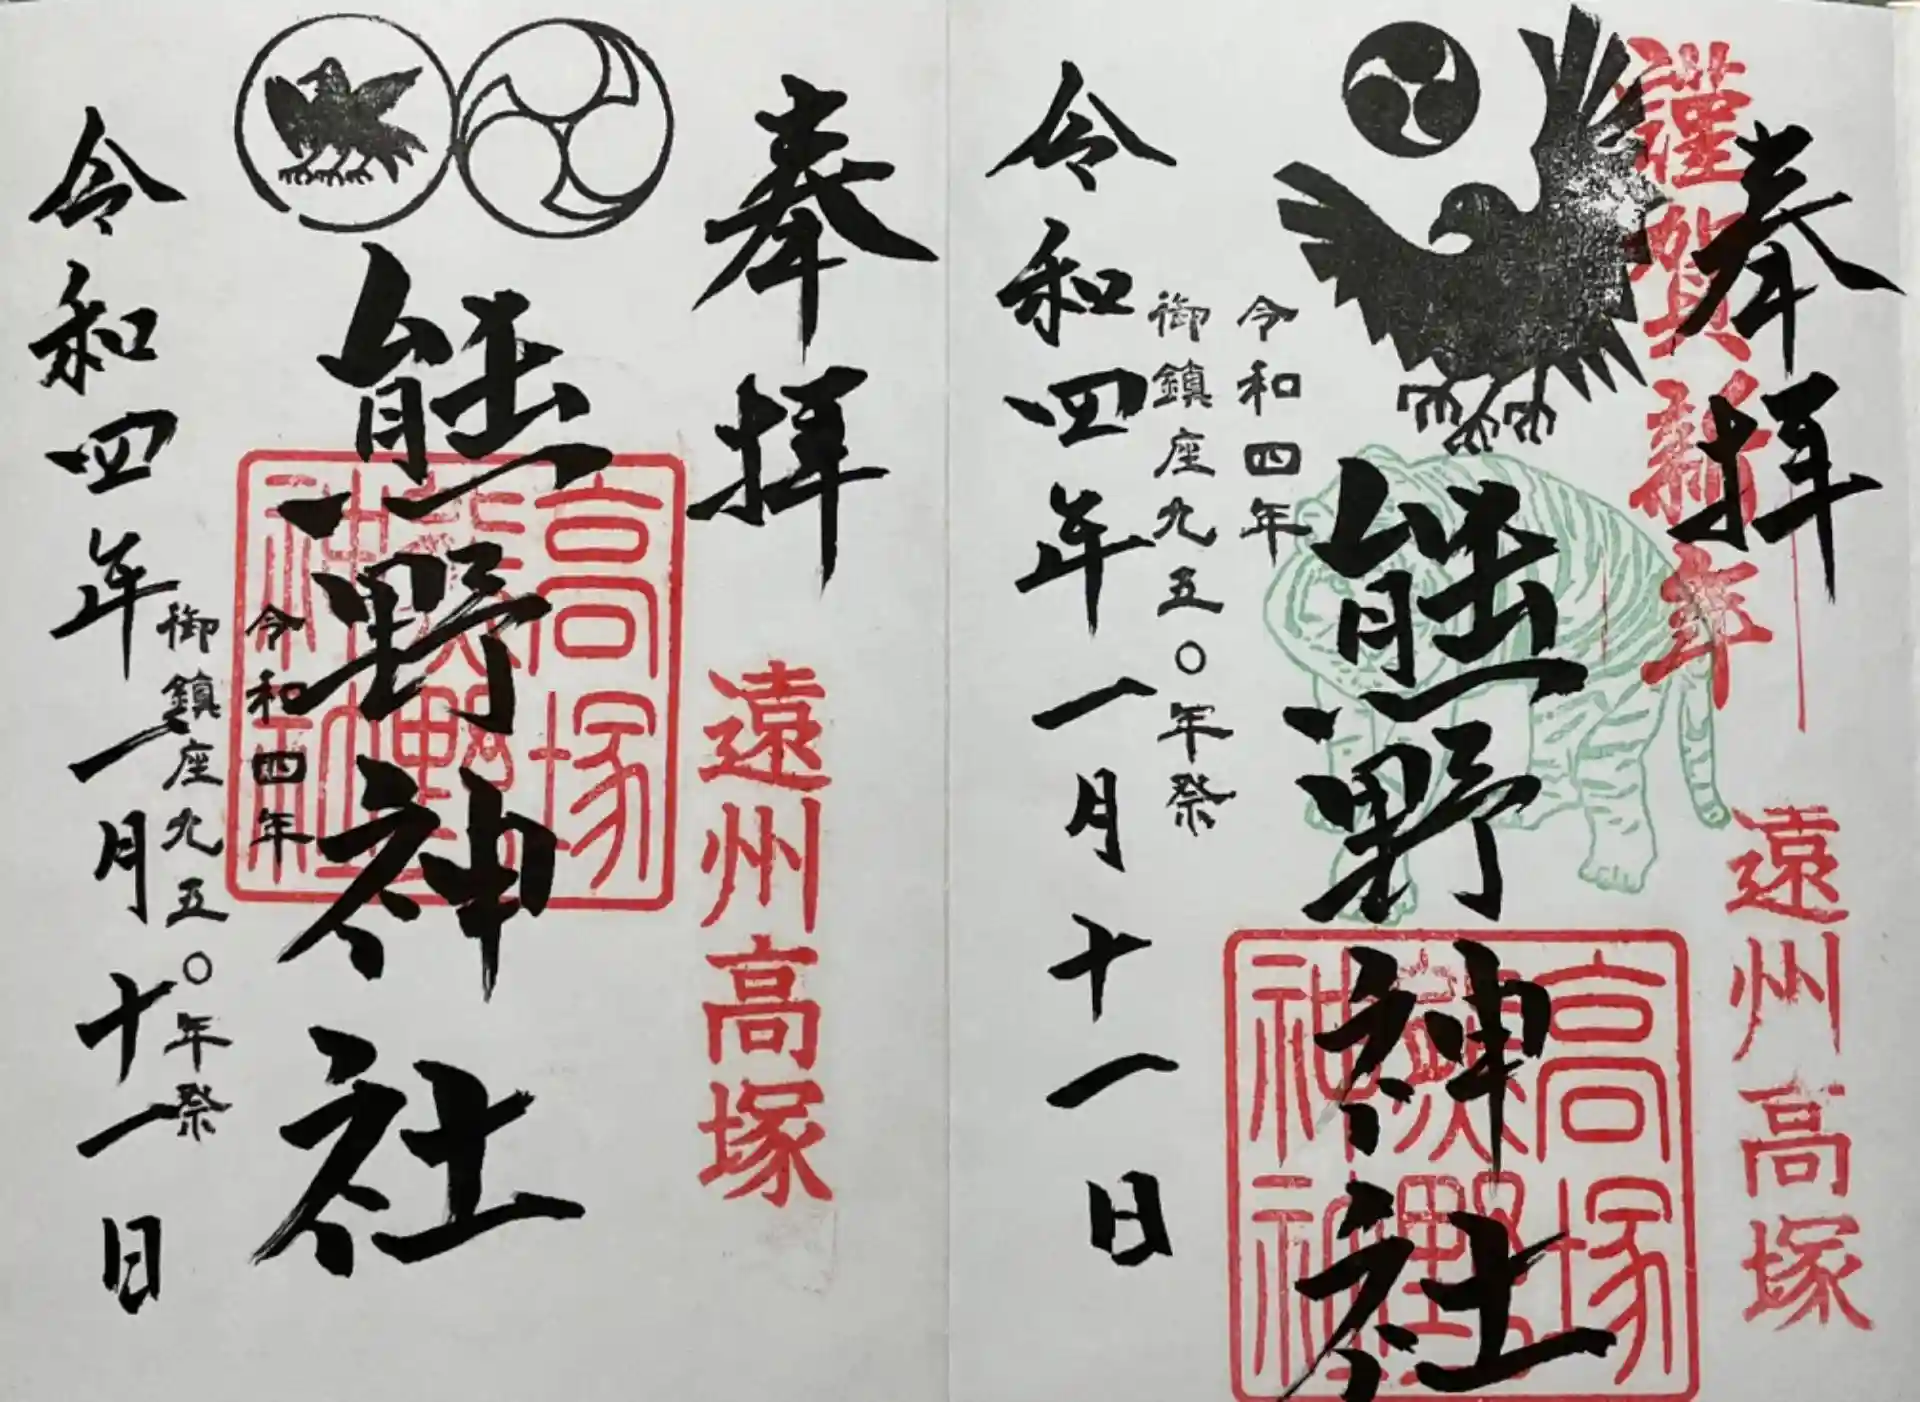 謹賀新年
奉拝
遠州高塚
熊野神社
高塚
熊野
神社
令和四年
御鎮座九五〇年祭
令和四年一月十一日
奉拝
遠州高塚
熊野神社
高塚
熊野
神社
令和四年
御鎮座九五〇年祭
令和四年一月十一日